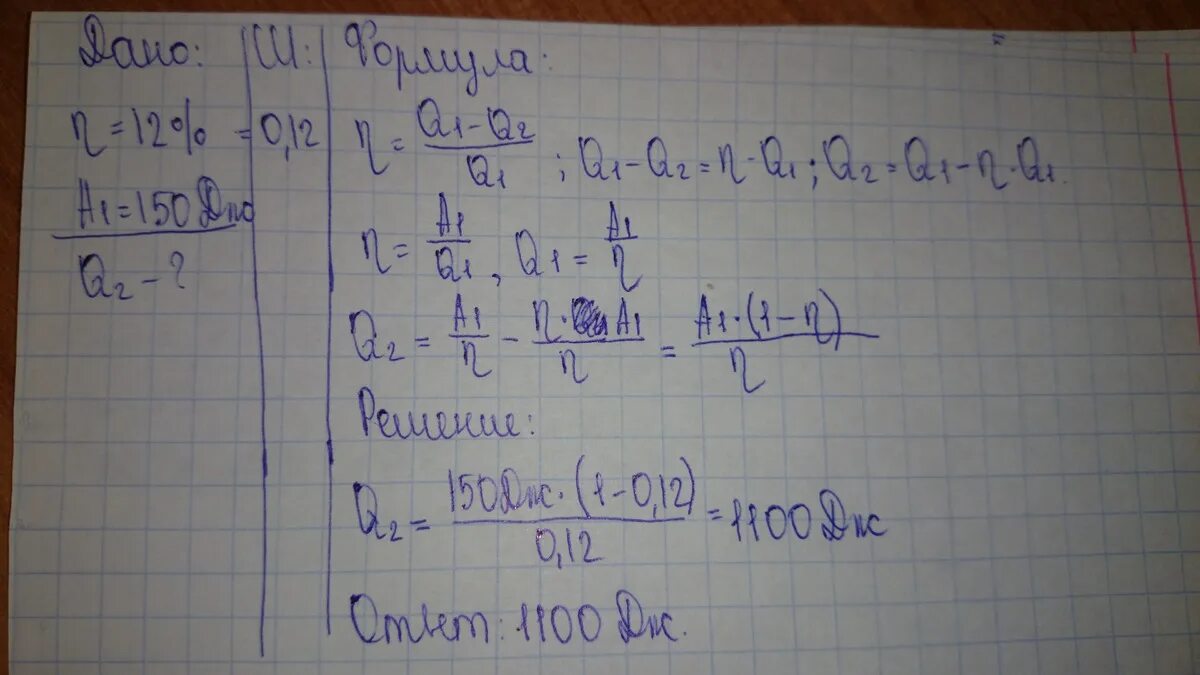 Дано: Ш: Формула:
η = 12% = 0,12
A1 = 150 Дж
Q2 - ?
η = (Q1 - Q2)/Q1 ; Q1 - Q2 = η · Q1 ; Q2 = Q1 - η · Q1.
η = A1/Q1 , Q1 = A1/η
Q2 = A1/η - η · A1/η = A1 · (1 - η)/η
Решение:
Q2 = 150 Дж · (1 - 0,12)/0,12 = 1100 Дж
Ответ: 1100 Дж.